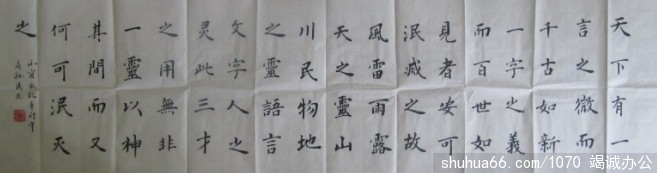 天下有一
言之微而
千古如新
一字之義
而百世如
見者安可
泯滅之故
風雷雨露
天之靈山
川民物地
之靈語言
文字人之
灵此三才
之用無非
一靈以神
其間而又
何可泯灭
之
小窗幽記
shuhua66.com/1070 竭诚办公